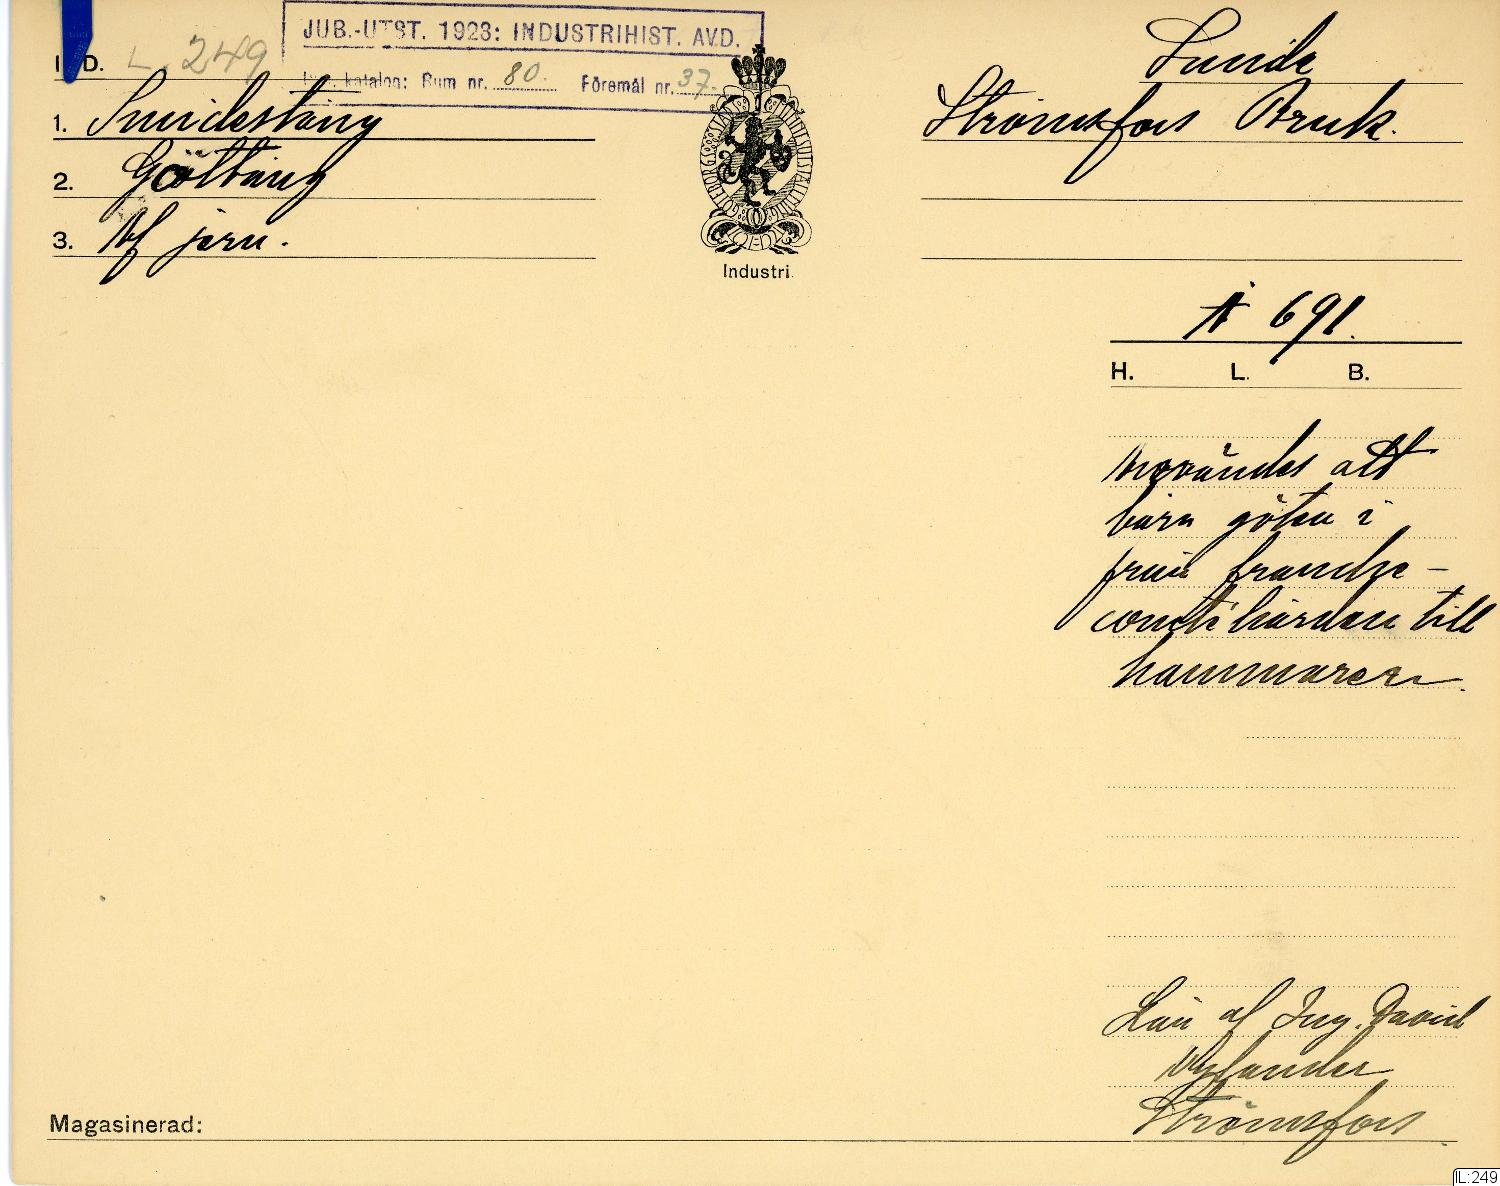 JUB.-UTST. 1923: INDUSTRIHIST. AVD.
katalog: Rum nr. 80. Föremål nr. 37.
I D. L. 249
1. Smidestång
2. Göttång
3. Af jern.
GÖTEBORGS STAD
Industri
Smide
Strömsfors Bruk.
A 691.
H. L. B.
Användes att
bära göten i
från franche-
comtéhärden till
hammaren.
Lån af Ing. David
Nylander
Strömsfors
Magasinerad:
IL:249